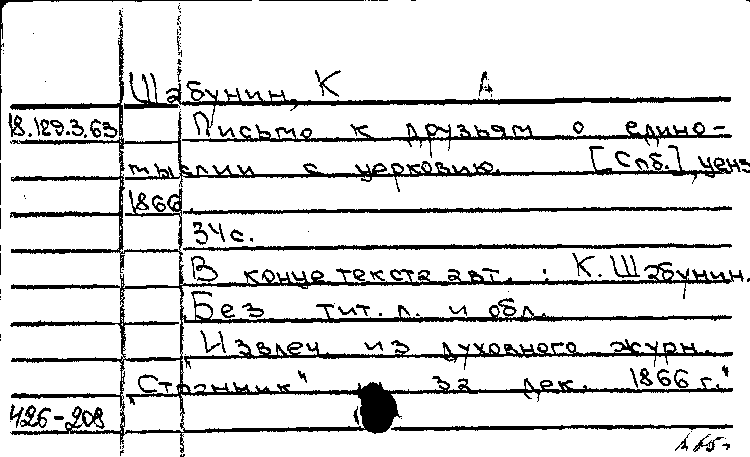 Шабунин, К А
18.129.3.63 Письмо к друзьям о едино-
мыслии с церковию. [Спб.], ценз.
1866.
34 с.
В конце текста авт.: К. Шабунин.
Без тит. л. и обл.
"Извлеч. из духовного журн.
"Странник" за дек. 1866 г."
426-208